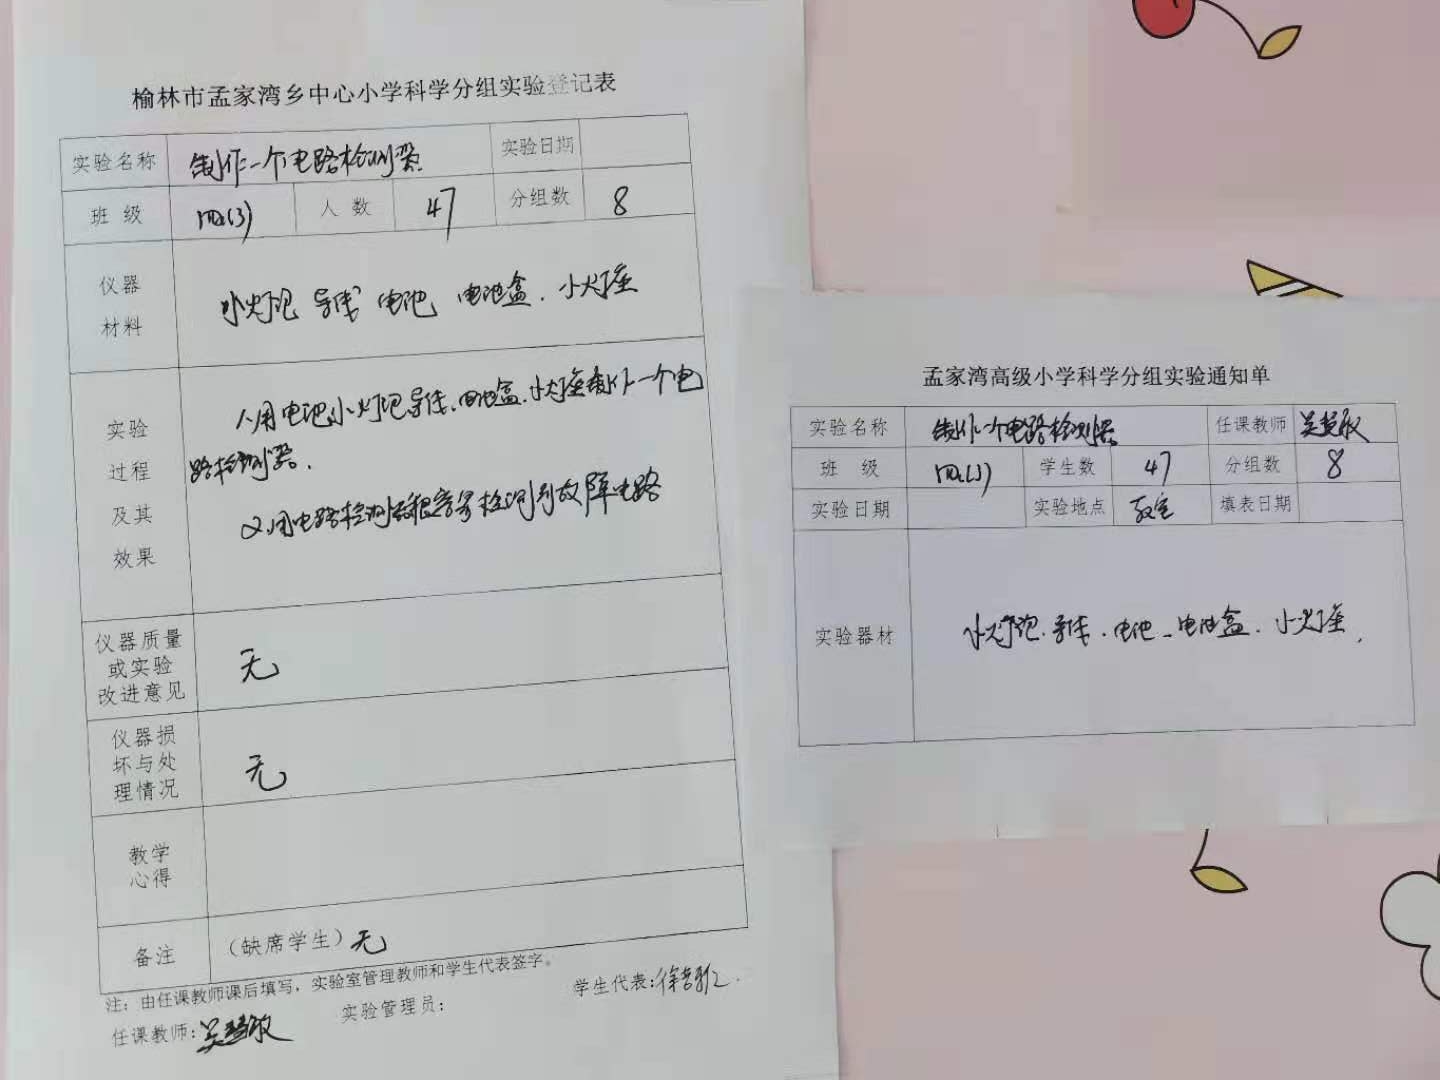 榆林市孟家湾乡中心小学科学分组实验登记表
实验名称 制作一个电路检测器 实验日期
班 级 四(3) 人 数 47 分组数 8
仪器
材料
小灯泡 导线 电池 电池盒、小灯座
实验
过程
及其
效果
1、用电池、小灯泡、导线、电池盒、小灯座制作一个电
路检测器、
2、用电路检测器 检测到故障电路
仪器质量
或实验
改进意见
无
仪器损
坏与处
理情况
无
教学
心得
备注 (缺席学生) 无
注: 由任课教师课后填写, 实验室管理教师和学生代表签字。
任课教师: 吴慧敏 实验管理员: 学生代表:
孟家湾高级小学科学分组实验通知单
实验名称 制作一个电路检测器 任课教师 吴慧敏
班 级 四(3) 学生数 47 分组数 8
实验日期 实验地点 教室 填表日期
实验器材 小灯泡、导线、电池、电池盒、小灯座、